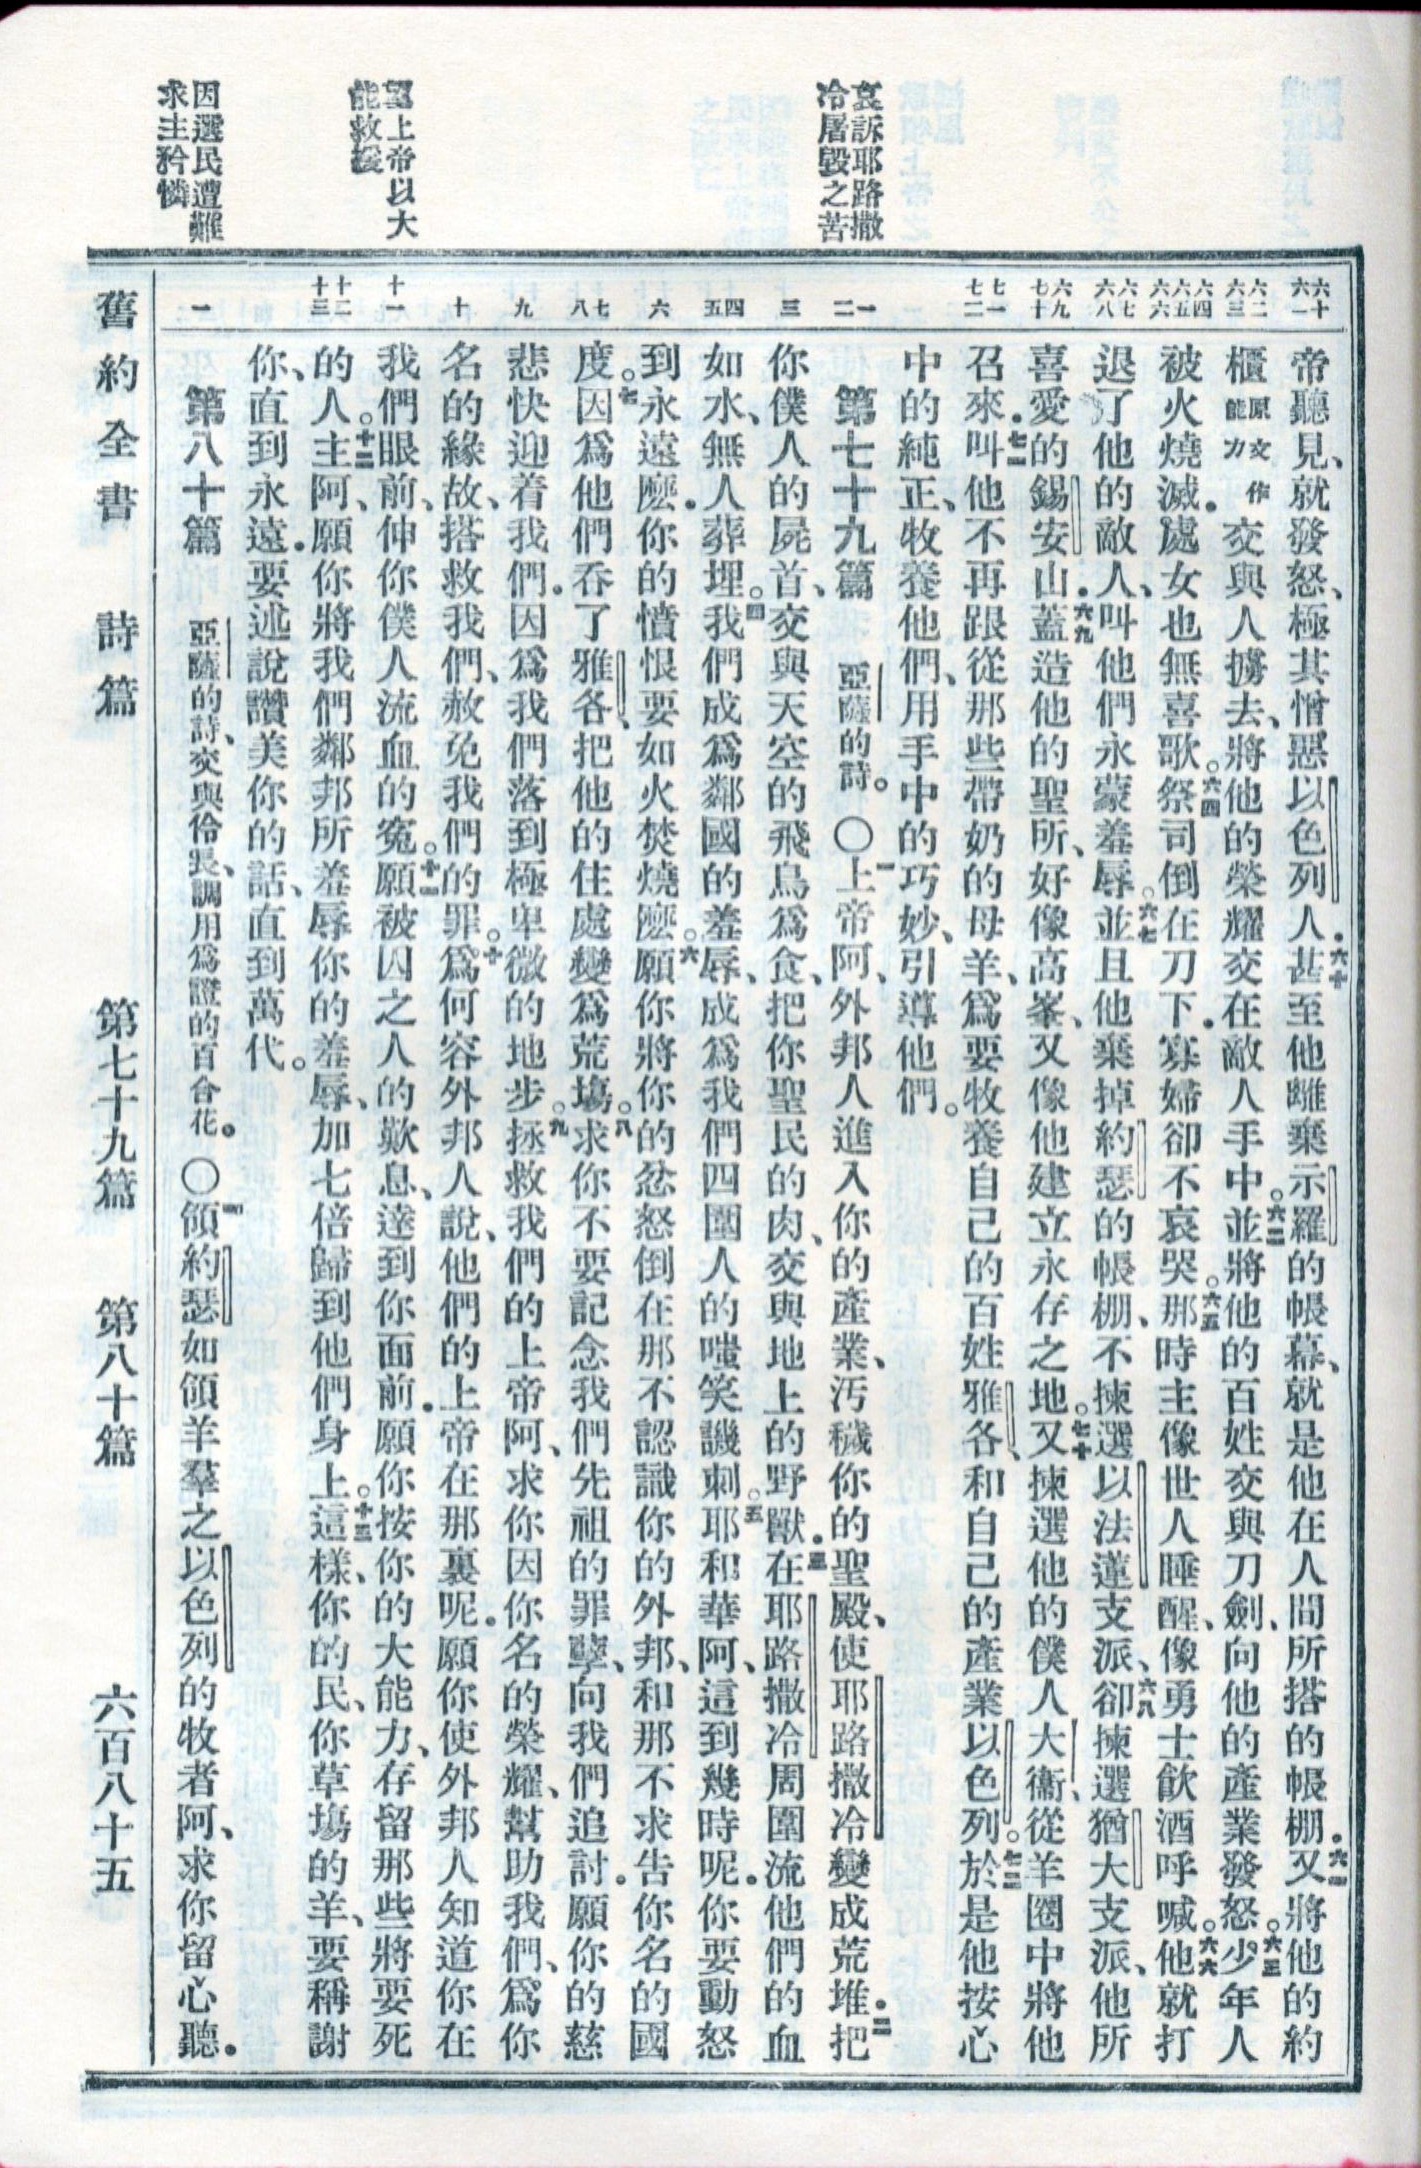 哀訴耶路撒
冷屠毀之苦
望上帝以大
能救援
因選民遭難
求主矜憐
六十
六一
六二
六三
六四
六五
六六
六七
六八
六九
七十
七一
七二
一
二
三
四
五
六
七
八
九
十
十一
十二
十三
一
帝聽見、就發怒、極其憎惡以色列人．六十甚至他離棄示羅的帳幕、就是他在人間所搭的帳棚．六一又將他的約
櫃原文作能力交與人擄去、將他的榮耀交在敵人手中。六二並將他的百姓交與刀劍、向他的產業發怒。六三少年人
被火燒滅．處女也無喜歌。六四祭司倒在刀下．寡婦卻不哀哭。六五那時主像世人睡醒、像勇士飲酒呼喊。六六他就打
退了他的敵人、叫他們永蒙羞辱。六七並且他棄掉約瑟的帳棚、不揀選以法蓮支派、六八卻揀選猶大支派、他所
喜愛的錫安山．六九蓋造他的聖所、好像高峯、又像他建立永存之地。七十又揀選他的僕人大衞、從羊圈中將他
召來．七一叫他不再跟從那些帶奶的母羊、爲要牧養自己的百姓雅各、和自己的產業以色列。七二於是他按心
中的純正、牧養他們、用手中的巧妙、引導他們。
第七十九篇 亞薩的詩。〇一上帝阿、外邦人進入你的產業、汚穢你的聖殿、使耶路撒冷變成荒堆．二把
你僕人的屍首、交與天空的飛鳥爲食、把你聖民的肉、交與地上的野獸．三在耶路撒冷周圍流他們的血
如水、無人葬埋。四我們成爲鄰國的羞辱、成爲我們四圍人的嗤笑譏刺。五耶和華阿、這到幾時呢．你要動怒
到永遠麽．你的憤恨要如火焚燒麽。六願你將你的忿怒倒在那不認識你的外邦、和那不求告你名的國
度。七因爲他們吞了雅各、把他的住處變爲荒塲。八求你不要記念我們先祖的罪孽、向我們追討．願你的慈
悲快迎着我們．因爲我們落到極卑微的地步。九拯救我們的上帝阿、求你因你名的榮耀、幫助我們、爲你
名的緣故、搭救我們、赦免我們的罪。十爲何容外邦人說、他們的上帝在那裏呢．願你使外邦人知道你在
我們眼前、伸你僕人流血的冤。十一願被囚之人的歎息、達到你面前．願你按你的大能力、存留那些將要死
的人。十二主阿、願你將我們鄰邦所羞辱你的羞辱、加七倍歸到他們身上。十三這樣、你的民、你草塲的羊、要稱謝
你、直到永遠．要述說讚美你的話、直到萬代。
第八十篇 亞薩的詩、交與伶長、調用爲證的百合花。〇一領約瑟如領羊羣之以色列的牧者阿、求你留心聽．
舊約全書 詩篇 第七十九篇 第八十篇 六百八十五